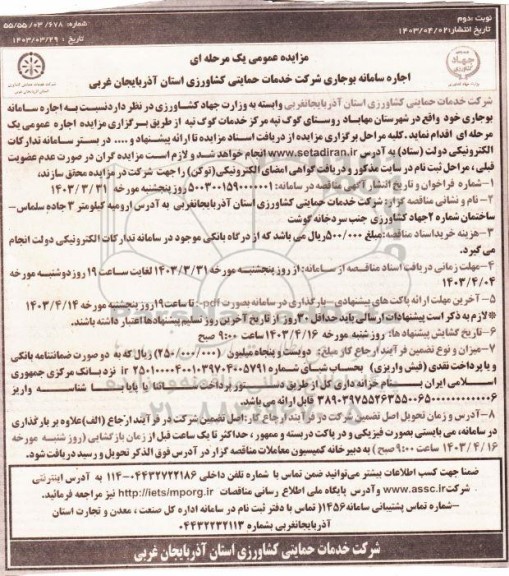 نوبت :دوم
تاریخ انتشار:۱۴۰۳/۰۴/۰۲
شماره: ۵۵/۵۵/۰۳/۶۷۸
تاریخ : ۱۴۰۳/۰۳/۲۹
مزایده عمومی یک مرحله ای
اجاره سامانه بوجاری شرکت خدمات حمایتی کشاورزی استان آذربایجان غربی
شرکت خدمات حمایتی کشاورزی استان آذربایجانغربی وابسته به وزارت جهاد کشاورزی در نظر دارد نسبت به اجاره سامانه
بوجاری خود واقع در شهرستان مهاباد روستای گوک تپه مرکز خدمات گوک تپه از طریق برگزاری مزایده اجاره عمومی یک
مرحله ای اقدام نماید . کلیه مراحل برگزاری مزایده از دریافت اسناد مزایده تا ارائه پیشنهاد و .... در بستر سامانه تدارکات
الکترونیکی دولت (ستاد) به آدرس www.setadiran.ir انجام خواهد شد و لازم است مزایده گران در صورت عدم عضویت
قبلی ، مراحل ثبت نام در سایت مذکور و دریافت گواهی امضای الکترونیکی (توکن) را جهت شرکت در مزایده محقق سازند،
۱-شماره فراخوان و تاریخ انتشار آگهی مناقصه در سامانه: ۵۰۰۳۰۰۱۵۹۰۰۰۰۰۰۱ روز پنجشنبه مورخه ۱۴۰۳/۳/۳۱
۲- نام و نشانی مناقصه گزار: شرکت خدمات حمایتی کشاورزی استان آذربایجانغربی به آدرس ارومیه کیلومتر ۳ جاده سلماس-
ساختمان شماره ۲ جهاد کشاورزی جنب سردخانه گوشت
۳-هزینه خرید اسناد مناقصه: مبلغ ۵۰۰/۰۰۰ ریال می باشد که از درگاه بانکی موجود در سامانه تدارکات الکترونیکی دولت انجام
می گیرد.
۴-مهلت زمانی دریافت اسناد مناقصه از سامانه: از روز پنجشنبه مورخه ۱۴۰۳/۳/۳۱ لغایت ساعت ۱۹ روز دوشنبه مورخه
۱۴۰۳/۴/۰۴
۵- آخرین مهلت ارائه پاکت های پیشنهادی –بارگذاری در سامانه بصورت pdf-: تا ساعت ۱۹ روز پنجشنبه مورخه ۱۴۰۳/۴/۱۴
*لازم به ذکر است پیشنهادات ارسالی باید حداقل ۳۰ روز از تاریخ آخرین روز تسلیم پیشنهادها اعتبار داشته باشند.
۶-تاریخ گشایش پیشنهاد ها: روز شنبه مورخه ۱۴۰۳/۴/۱۶ ساعت ۹:۰۰ صبح
۷-میزان و نوع تضمین فرآیند ارجاع کار مبلغ: دویست و پنجاه میلیون (۲۵۰/۰۰۰/۰۰۰) ریال که به دو صورت ضمانتنامه بانکی
و یا پرداخت نقدی (فیش واریزی) بحساب شبای شماره ir ۲۵۰۱۰۰۰۰۴۰۰۱۰۳۹۷۰۴۰۰۵۷۹۱ نزد بانک مرکزی جمهوری
اسلامی ایران بنام خزانه داری کل از طریق دستور پرداخت ساتنا یا پایا با شناسه واریز
۳۸۹۰۳۹۷۵۵۲۶۳۵۵۰۰۶۵۰۰۰۰۰۰۰۰۰۰۰ قابل ارائه می باشد.
۸-آدرس و زمان تحویل اصل تضمین شرکت در فرآیند ارجاع کار: اصل تضمین شرکت در فرآیند ارجاع (الف) علاوه بر بارگذاری
در سامانه، می بایستی بصورت فیزیکی و در پاکت دربسته و ممهور ، حداکثر تا یک ساعت قبل از زمان بازگشایی (روز شنبه مورخه
۱۴۰۳/۴/۱۶ ساعت ۹:۰۰ صبح) به دبیرخانه کمیسیون معاملات مناقصه گزار در آدرس فوق الذکر تحویل و رسید دریافت شود.
ضمنا جهت کسب اطلاعات بیشتر می توانید ضمن تماس با شماره تلفن داخلی ۰۴۴۳۲۷۲۲۱۸۶-۱۱۴ به آدرس اینترنتی
شرکت www.assc.ir وآدرس پایگاه ملی اطلاع رسانی مناقصات http://iets/mporg.ir نیز مراجعه فرمائید.
–شماره تماس پشتیبانی سامانه ۱۴۵۶ (تماس با دفتر ثبت نام در سامانه اداره کل صنعت ، معدن و تجارت استان
آذربایجانغربی بشماره ۰۴۴۳۲۲۳۲۱۱۳
شرکت خدمات حمایتی کشاورزی استان آذربایجان غربی